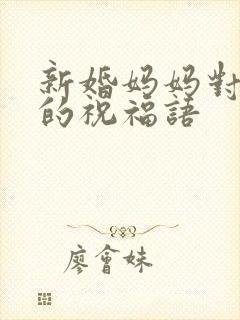 新婚妈妈對
的祝福語
廖會妹